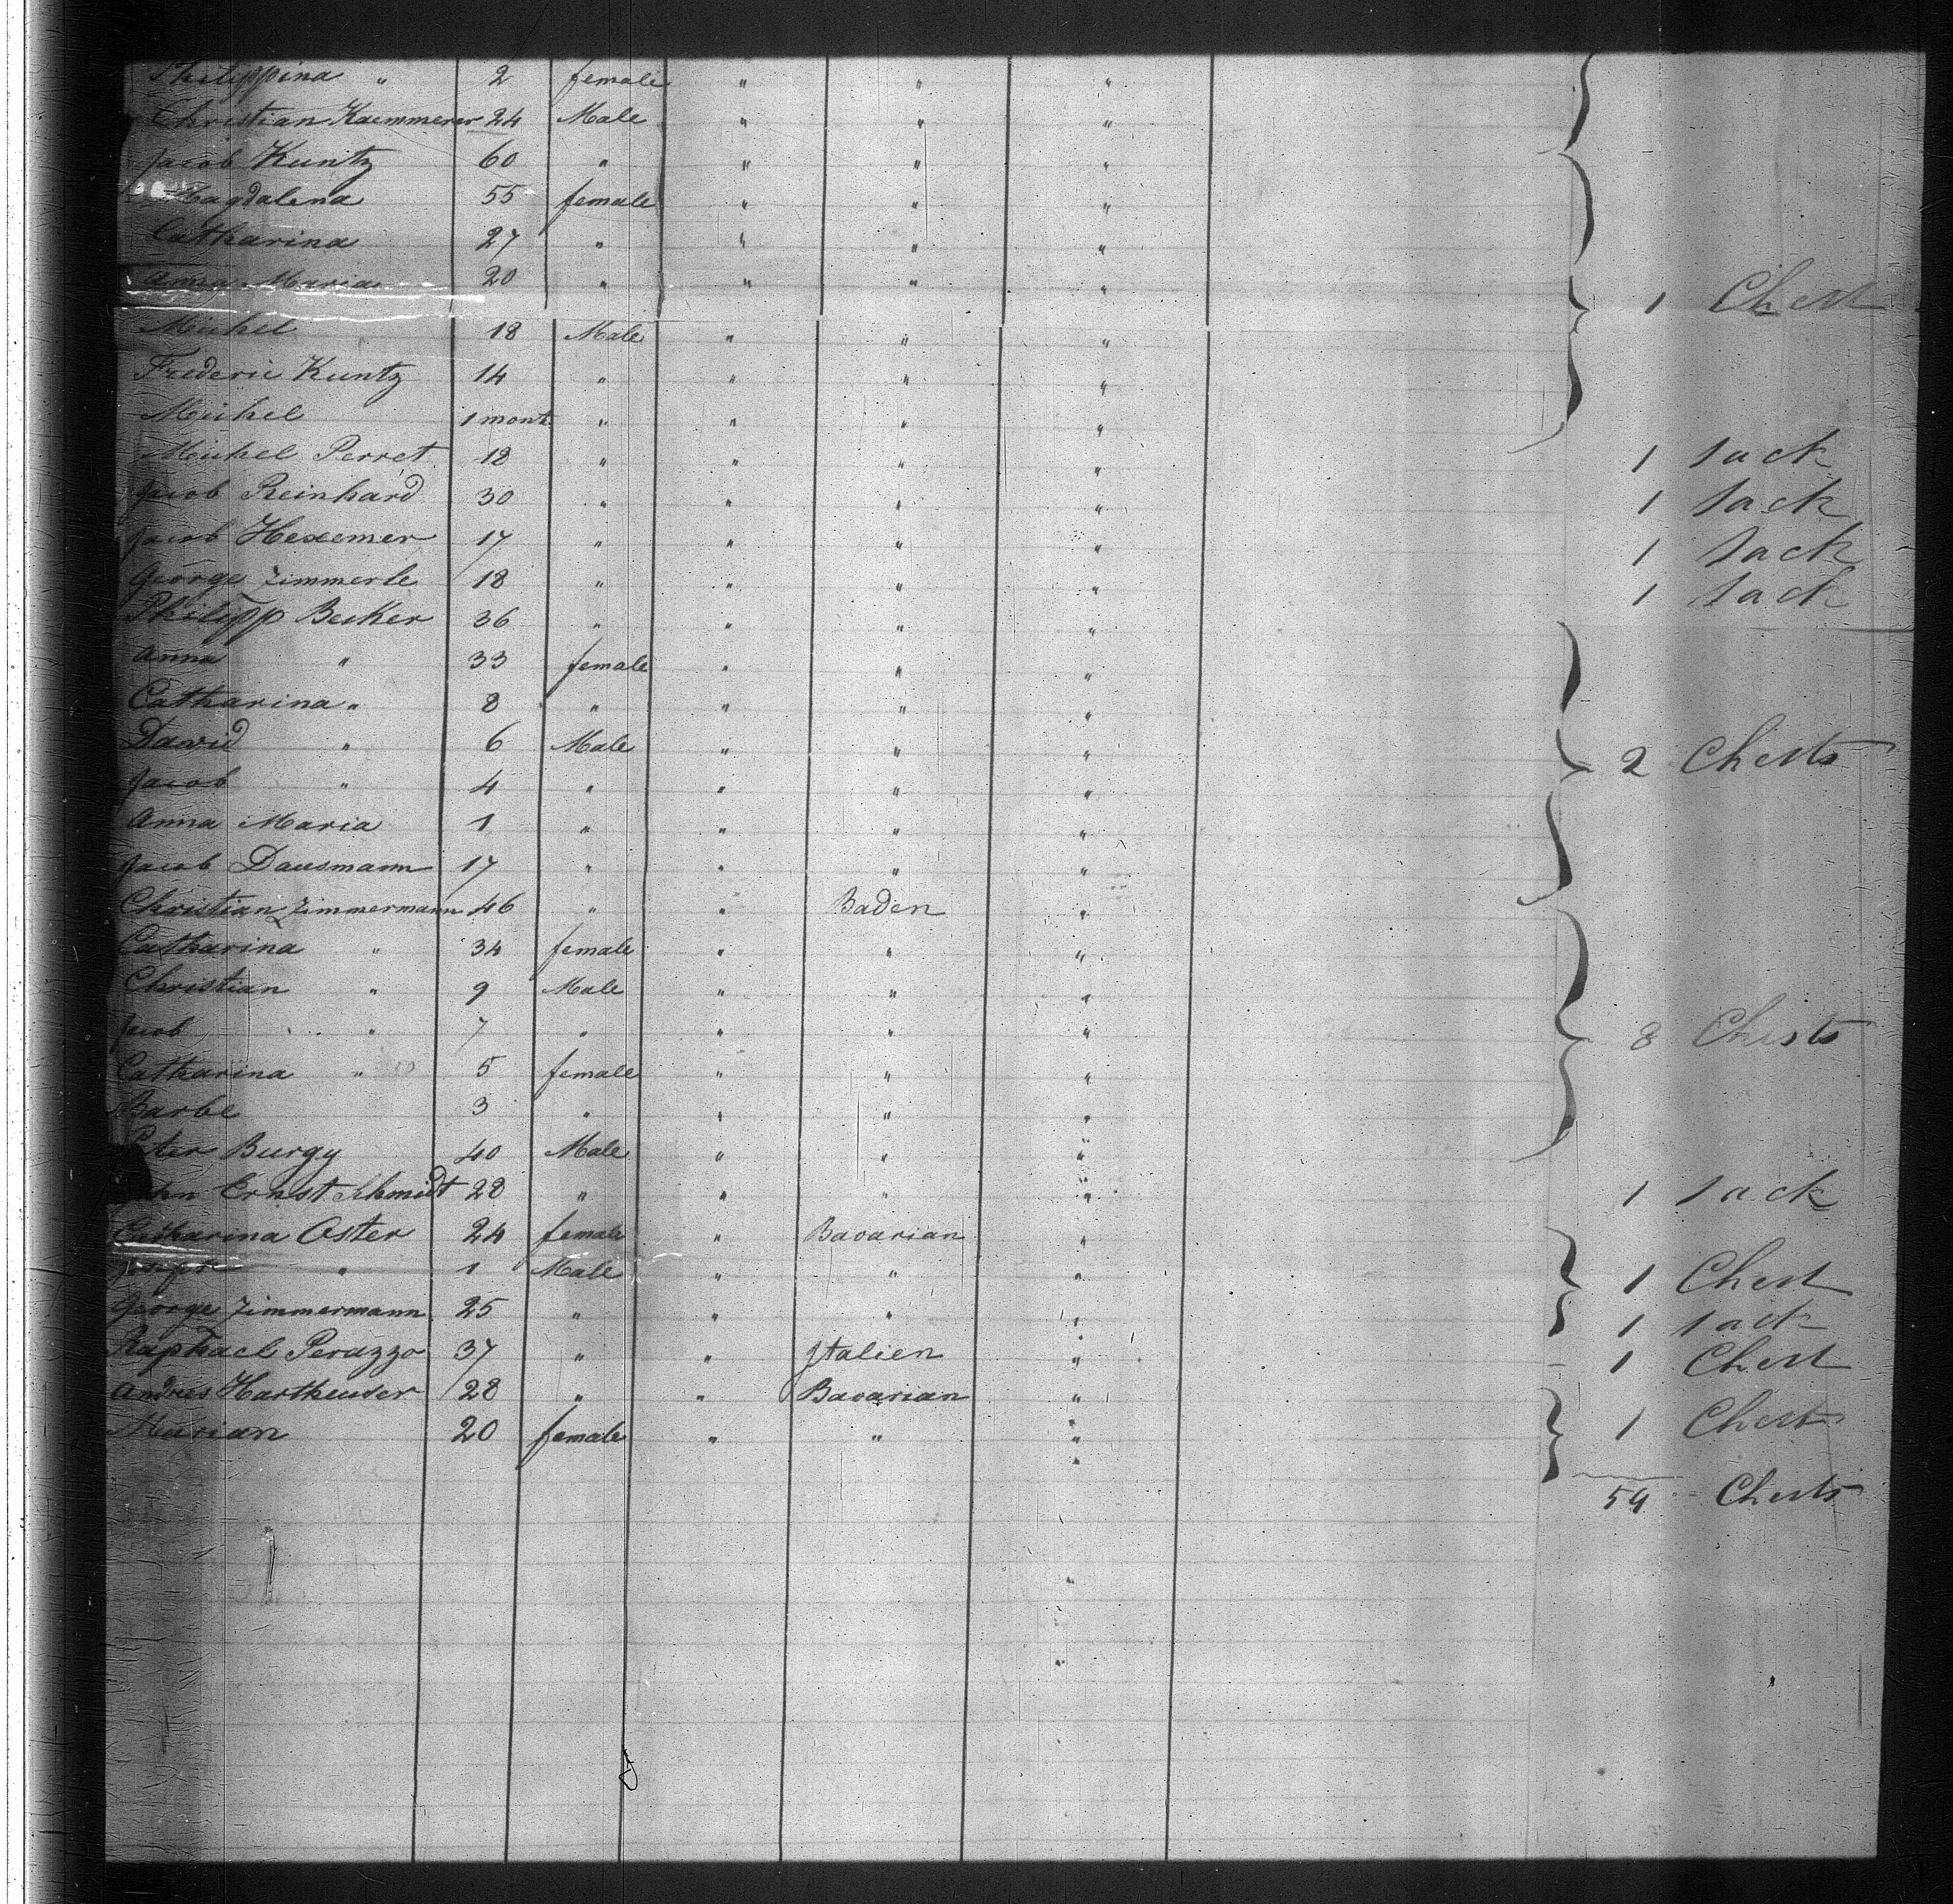 Philippina " 2 female " " "
Christian Kaemmerer 24 Male " " "
Jacob Kuntz 60 " " " "
Magdalena 55 female " " "
Catharina 27 " " " "
Anna Maria 20 " " " " 1 Chest
Michel 18 Male " " "
Frederic Kuntz 14 " " " "
Michel 1 month " " " "
Michel Perret 18 " " " " 1 Sack
Jacob Reinhard 30 " " " " 1 Sack
Jacob Hexemer 17 " " " " 1 Sack
George Zimmerle 18 " " " " 1 Sack
Philipp Becker 36 " " " "
Anna " 33 female " " "
Catharina " 8 " " " "
David " 6 Male " " " 2 Chests
Jacob " 4 " " " "
Anna Maria 1 " " " "
Jacob Dausmann 17 " " " "
Christian Zimmermann 46 " " Baden "
Catharina " 34 female " " "
Christian " 9 Male " " "
Jacob " 7 " " " " 8 Chests
Catharina " 5 female " " "
Barbe 3 " " " "
Peter Burgy 40 Male " " "
John Ernst Schmidt 28 " " " " 1 Sack
Catharina Oster 24 female " Bavarian "
" 1 Male " " " 1 Chest
George Zimmermann 25 " " " " 1 Sack
Raphael Perazzo 37 " " Italien " 1 Chest
Andres Hartheuser 28 " " Bavarian "
Marian 20 female " " " 1 Chest
54 Chests